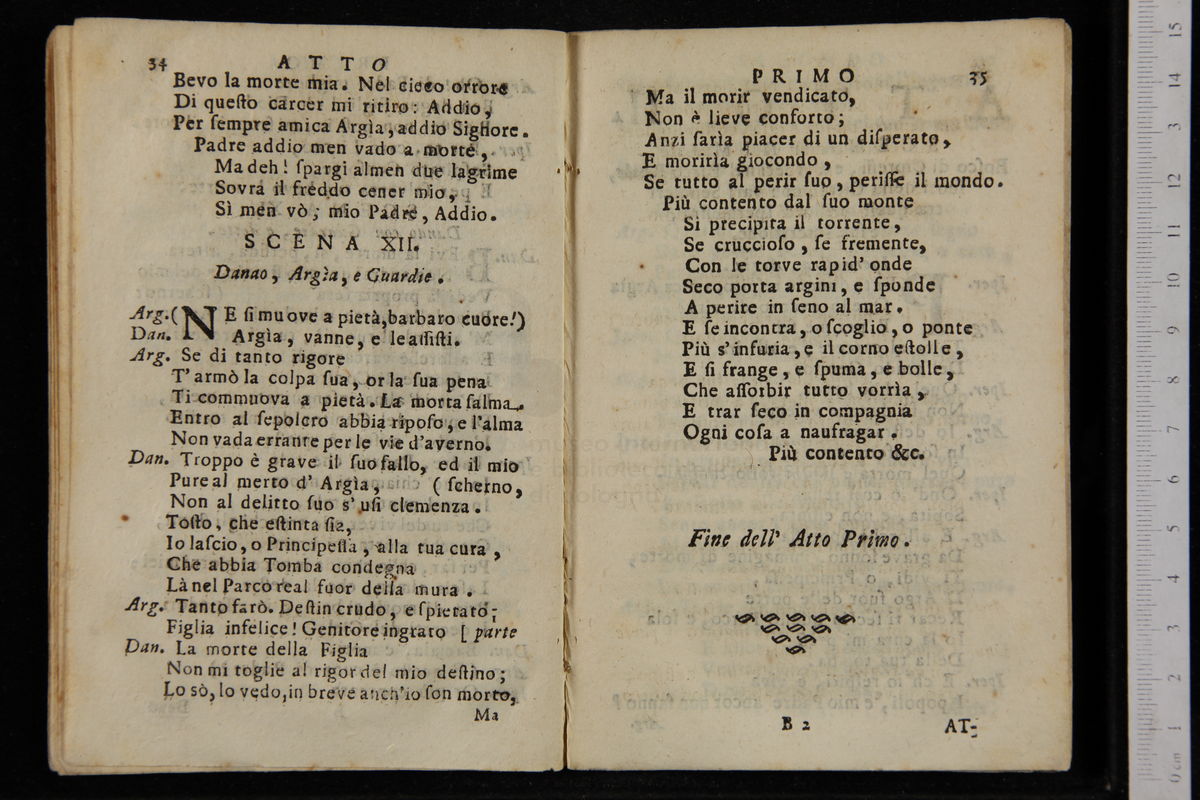 34 ATTO
Bevo la morte mia. Nel cieco orrore
Di queſto carcer mi ritiro: Addio,
Per ſempre amica Argìa, addio Signore.
Padre addio men vado a morte,
Ma deh! ſpargi almen due lagrime
Sovra il freddo cener mio,
Sì men vò; mio Padre, Addio.
SCENA XII.
Danao, Argìa, e Guardie.
Arg. (NE ſi muove a pietà, barbaro cuore!)
Dan. Argìa, vanne, e le aſſiſti.
Arg. Se di tanto rigore
T' armò la colpa ſua, or la ſua pena
Ti commuova a pietà. La morta ſalma
Entro al ſepolcro abbia ripoſo, e l'alma
Non vada errante per le vie d'averno.
Dan. Troppo è grave il ſuo fallo, ed il mio
Pure al merto d' Argìa, ( ſcherno,
Non al delitto ſuo s' uſi clemenza.
Toſto, che eſtinta ſia,
Io laſcio, o Principeſſa, alla tua cura,
Che abbia Tomba condegna
Là nel Parco real fuor della mura.
Arg. Tanto farò. Deſtin crudo, e ſpietato;
Figlia infelice! Genitore ingrato [ parte
Dan. La morte della Figlia
Non mi toglie al rigor del mio deſtino;
Lo sò, lo vedo, in breve anch'io ſon morto,
Ma
PRIMO 35
Ma il morir vendicato,
Non è lieve conforto;
Anzi ſarìa piacer di un diſperato,
E morirìa giocondo,
Se tutto al perir ſuo, periſſe il mondo.
Più contento dal ſuo monte
Si precipita il torrente,
Se cruccioſo, ſe fremente,
Con le torve rapid' onde
Seco porta argini, e ſponde
A perire in ſeno al mar.
E ſe incontra, o ſcoglio, o ponte
Più s' infuria, e il corno eſtolle,
E ſi frange, e ſpuma, e bolle,
Che aſſorbir tutto vorrìa,
E trar ſeco in compagnia
Ogni coſa a naufragar.
Più contento &c.
Fine dell' Atto Primo.
B 2 AT-